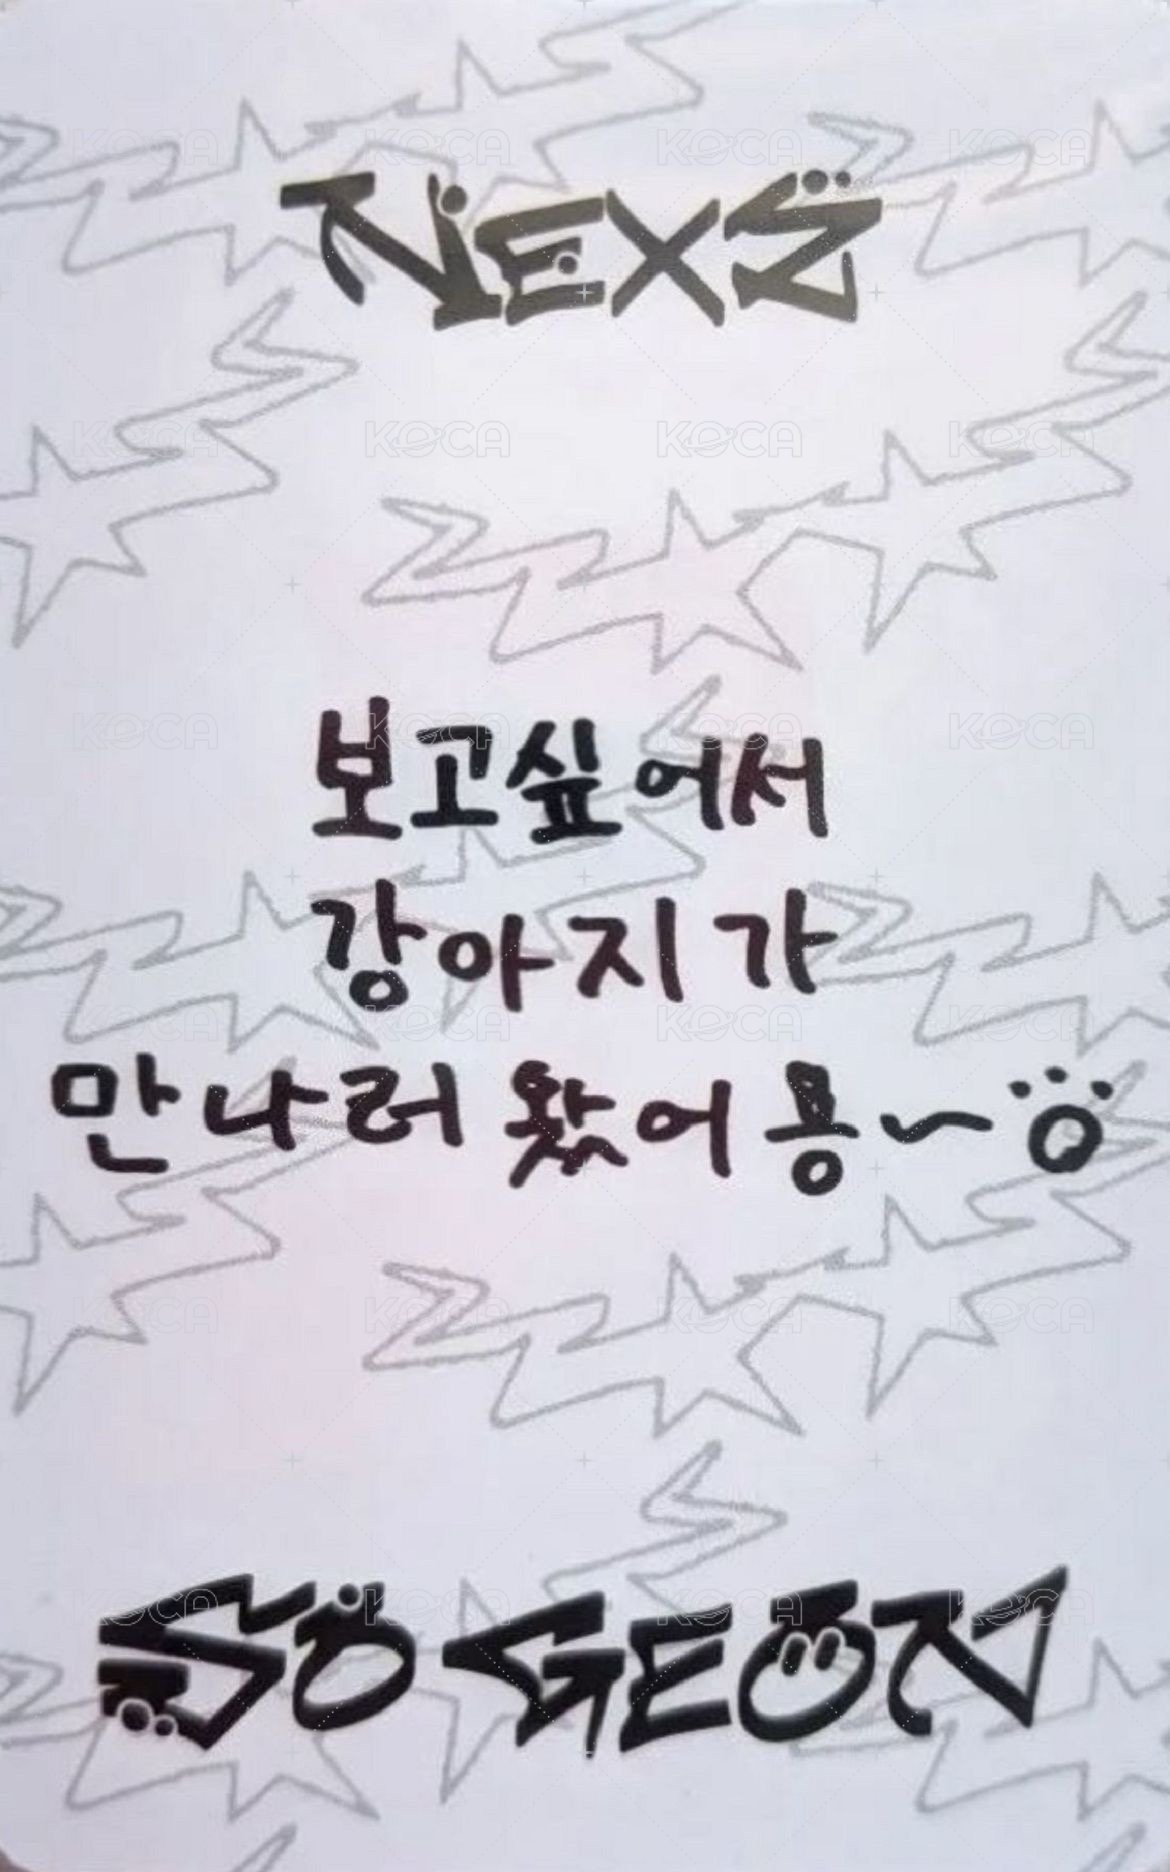 NEXZ
보고싶어서
강아지가
만나러 왔어용~
SO GEON
KOCA